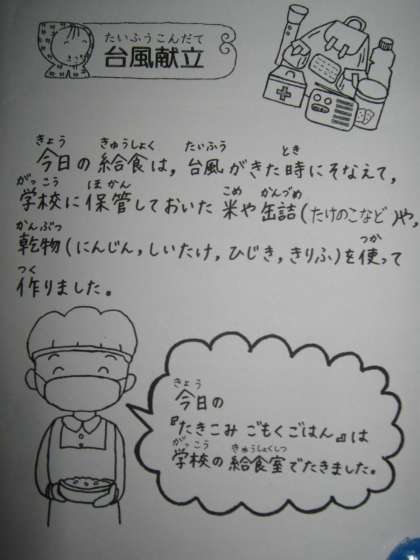 たいふうこんだて
台風献立
きょう きゅうしょく たいふう とき
今日の給食は,台風がきた時にそなえて,
がっこう ほかん こめ かんづめ
学校に保管しておいた米や缶詰(たけのこなど)や,
かんぶつ つか
乾物(にんじん,しいたけ,ひじき,きりふ)を使って
つく
作りました。
きょう
今日の
『たきこみごもくごはん』は
がっこう きゅうしょくしつ
学校の給食室でたきました。